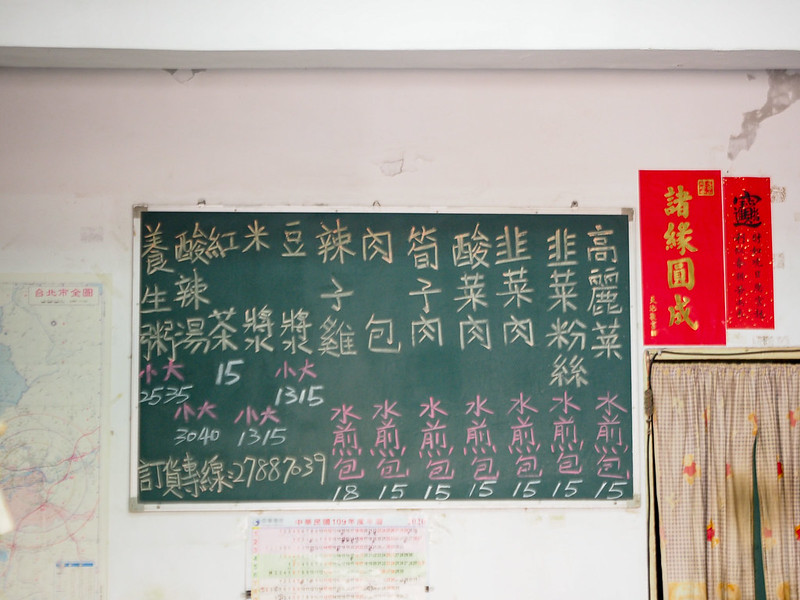 高麗菜
水煎包
15
韭菜粉絲
水煎包
15
韭菜肉
水煎包
15
酸菜肉
水煎包
15
筍子肉
水煎包
15
肉包
水煎包
15
辣子雞
水煎包
18
豆漿
小大
1315
米漿
小大
1315
紅茶
15
酸辣湯
小大
3040
養生粥
小大
2535
訂貨專線:27887039
諸緣圓成
台北市全圖
中華民國109年